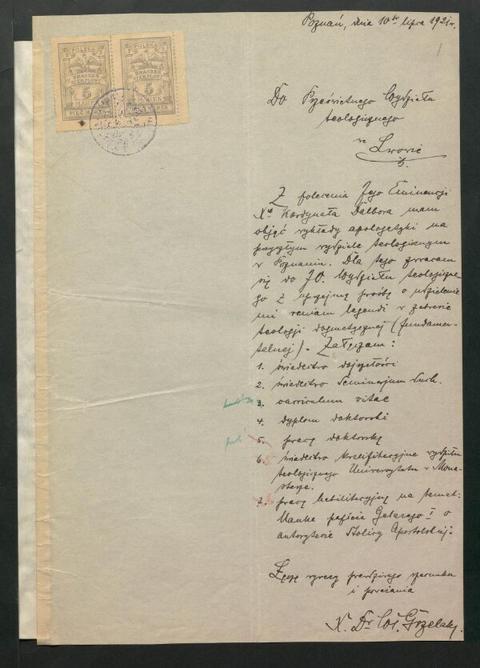 Poznań, dnia 10go lipca 1921 r.
1
POLSKA
ZNACZEK
STEMPLOWY
5
PIĘĆ MAREK
POLSKA
ZNACZEK
STEMPLOWY
5
PIĘĆ MAREK
Do Prześwietnego Wydziału
teologicznego
we
Lwowie
Z polecenia Jego Eminencji
Xa Kardynała Dalbora mam
objąć wykłady apologetyki na
przyszłym wydziale teologicznym
w Poznaniu. Dla tego zwracam
się do JO. Wydziału teologiczne
go z uprzejmą prośbą o udzielenie
mi veniam legendi w zakresie
teologji dogmatycznej (fundamen-
talnej). Załączam:
1. świadectwo dojrzałości
2. świadectwo Seminarjum Duch.
3. curriculum vitae
4. dyplom doktorski
5. pracę doktorską
6. świadectwo kwalifikacyjne wydziału
teologicznego Uniwersytetu w Mona-
sterze.
7. pracę habilitacyjną na temat:
Nauka papieża Gelazego I o
autorytecie Stolicy Apostolskiej.
Łączę wyrazy prawdziwego szacunku
i poważania
X. Dr Woj. Grzelak